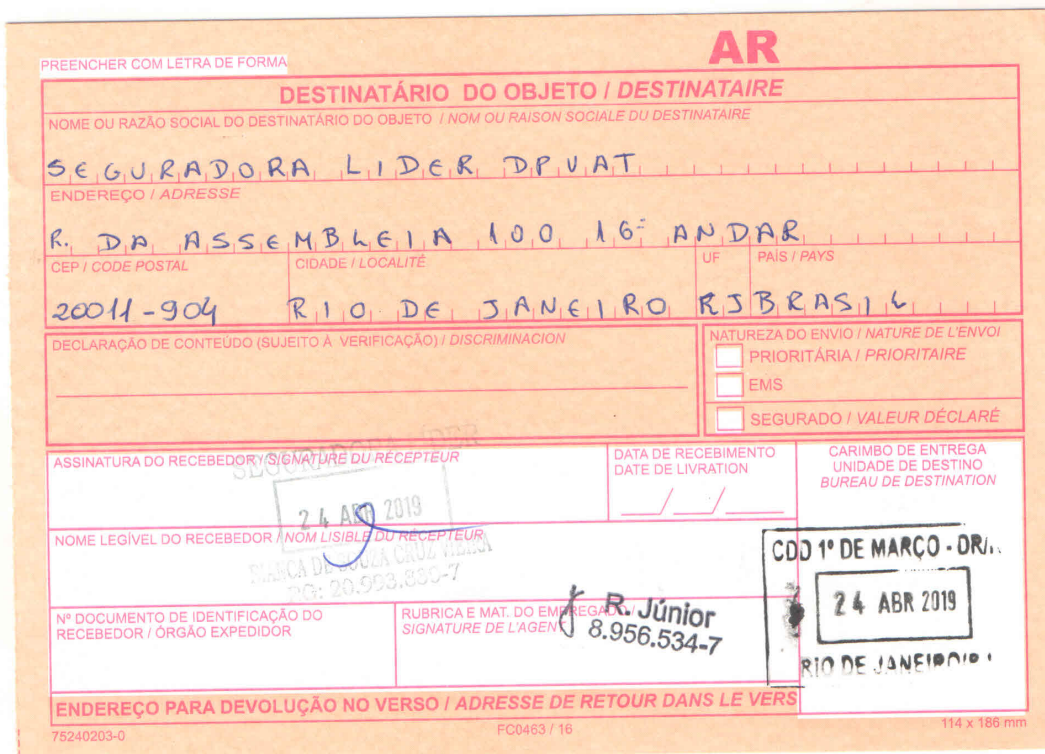 AR
PREENCHER COM LETRA DE FORMA
DESTINATÁRIO DO OBJETO / DESTINATAIRE
NOME OU RAZÃO SOCIAL DO DESTINATÁRIO DO OBJETO / NOM OU RAISON SOCIALE DU DESTINATAIRE
SEGURADORA LIDER DPVAT
ENDEREÇO / ADRESSE
R. DA ASSEMBLEIA 100 16º ANDAR
CEP / CODE POSTAL CIDADE / LOCALITÉ UF PAÍS / PAYS
20011-904 RIO DE JANEIRO RJ BRASIL
DECLARAÇÃO DE CONTEÚDO (SUJEITO À VERIFICAÇÃO) / DISCRIMINACION
NATUREZA DO ENVIO / NATURE DE L'ENVOI
PRIORITÁRIA / PRIORITAIRE
EMS
SEGURADO / VALEUR DÉCLARÉ
ASSINATURA DO RECEBEDOR / SIGNATURE DU RÉCEPTEUR
24 ABR 2019
DATA DE RECEBIMENTO
DATE DE LIVRATION
CARIMBO DE ENTREGA
UNIDADE DE DESTINO
BUREAU DE DESTINATION
NOME LEGÍVEL DO RECEBEDOR / NOM LISIBLE DU RÉCEPTEUR
DE SOUZA CRUZ
CDD 1º DE MARÇO - DR/
24 ABR 2019
RIO DE JANEIRO
Nº DOCUMENTO DE IDENTIFICAÇÃO DO
RECEBEDOR / ÓRGÃO EXPEDIDOR
RUBRICA E MAT. DO EMPREGADO /
SIGNATURE DE L'AGENT
R. Júnior
8.956.534-7
ENDEREÇO PARA DEVOLUÇÃO NO VERSO / ADRESSE DE RETOUR DANS LE VERS
75240203-0 FC0463 / 16 114 x 186 mm